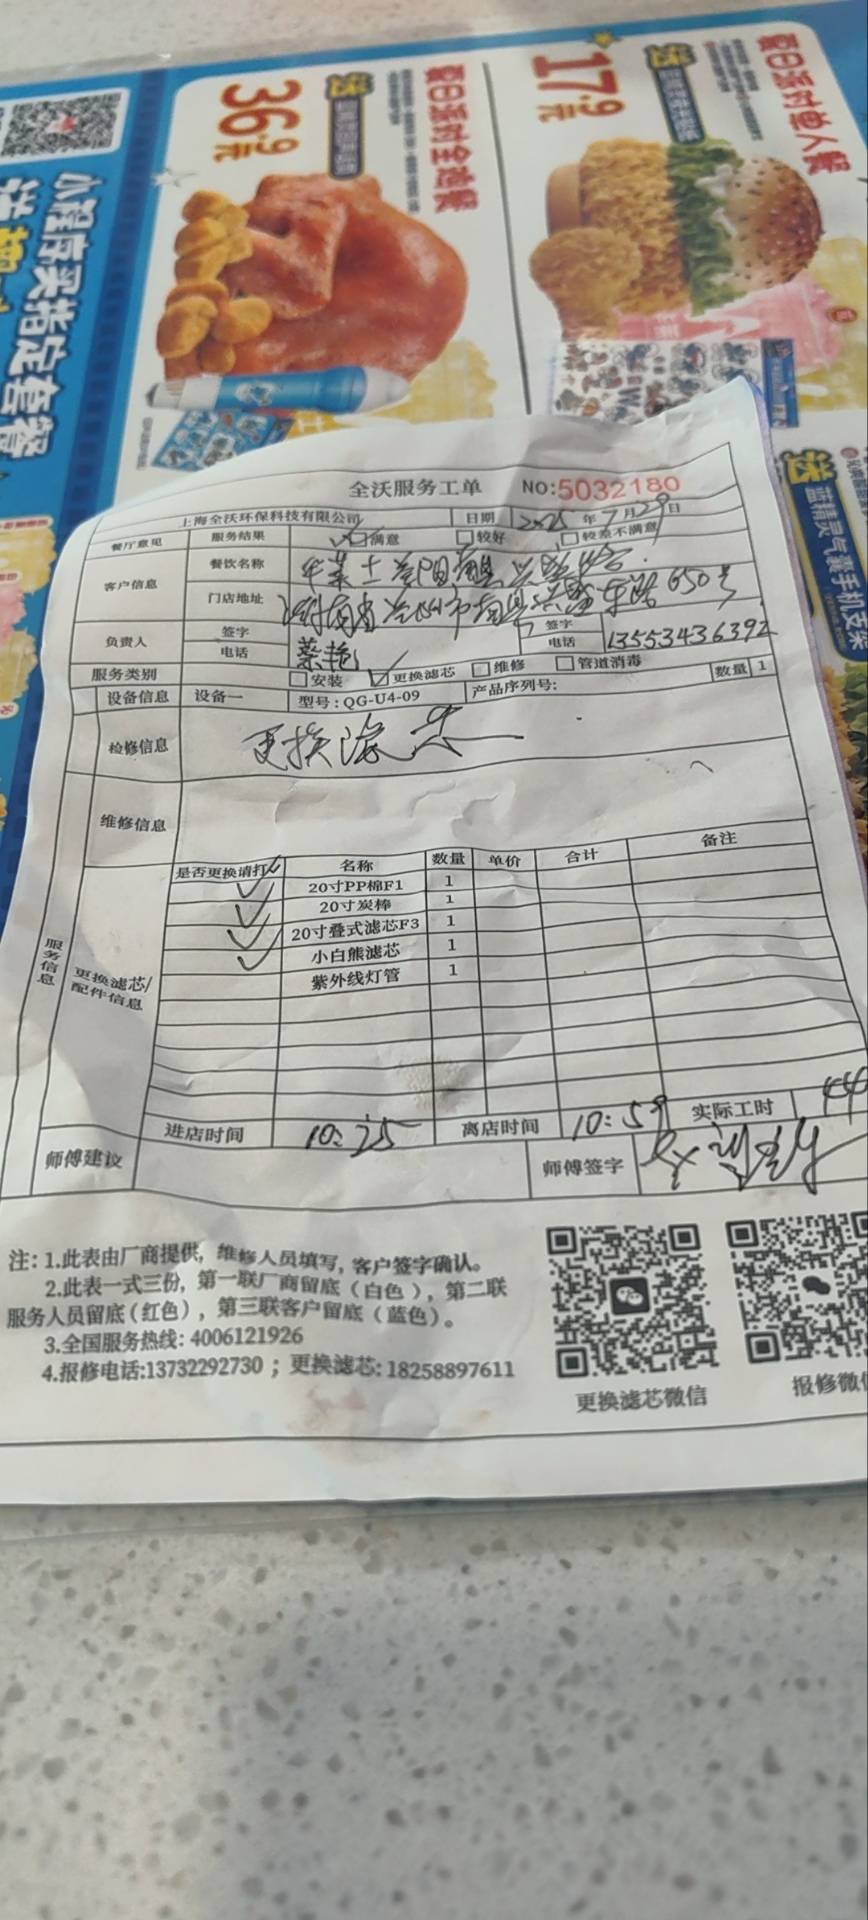 夏日派对单人餐
17.9元
送
夏日派对全造餐
36.9元
送
小程序买指定套餐
送
蓝精灵气囊手机支架
全沃服务工单 NO:5032180
上海全沃环保科技有限公司 日期 2025 年 7 月 29 日
餐厅意见 服务结果 满意 较好 较差不满意
客户信息 餐饮名称 华莱士
门店地址 湖南省 市南县兴盛东路650号
负责人 签字 签字
电话 电话 13553436392
服务类别 安装 更换滤芯 维修 管道消毒
设备信息 设备一 型号:QG-U4-09 产品序列号: 数量 1
检修信息 更换滤芯
维修信息
服务信息
更换滤芯/配件信息
是否更换请打√ 名称 数量 单价 合计 备注
20寸PP棉F1 1
20寸炭棒 1
20寸叠式滤芯F3 1
小白熊滤芯 1
紫外线灯管 1
进店时间 10:25 离店时间 10:59 实际工时 44
师傅建议 师傅签字
注: 1.此表由厂商提供, 维修人员填写, 客户签字确认。
2.此表一式三份, 第一联厂商留底 (白色), 第二联
服务人员留底 (红色), 第三联客户留底 (蓝色)。
3.全国服务热线: 4006121926
4.报修电话:13732292730 ; 更换滤芯: 18258897611
更换滤芯微信
报修微信